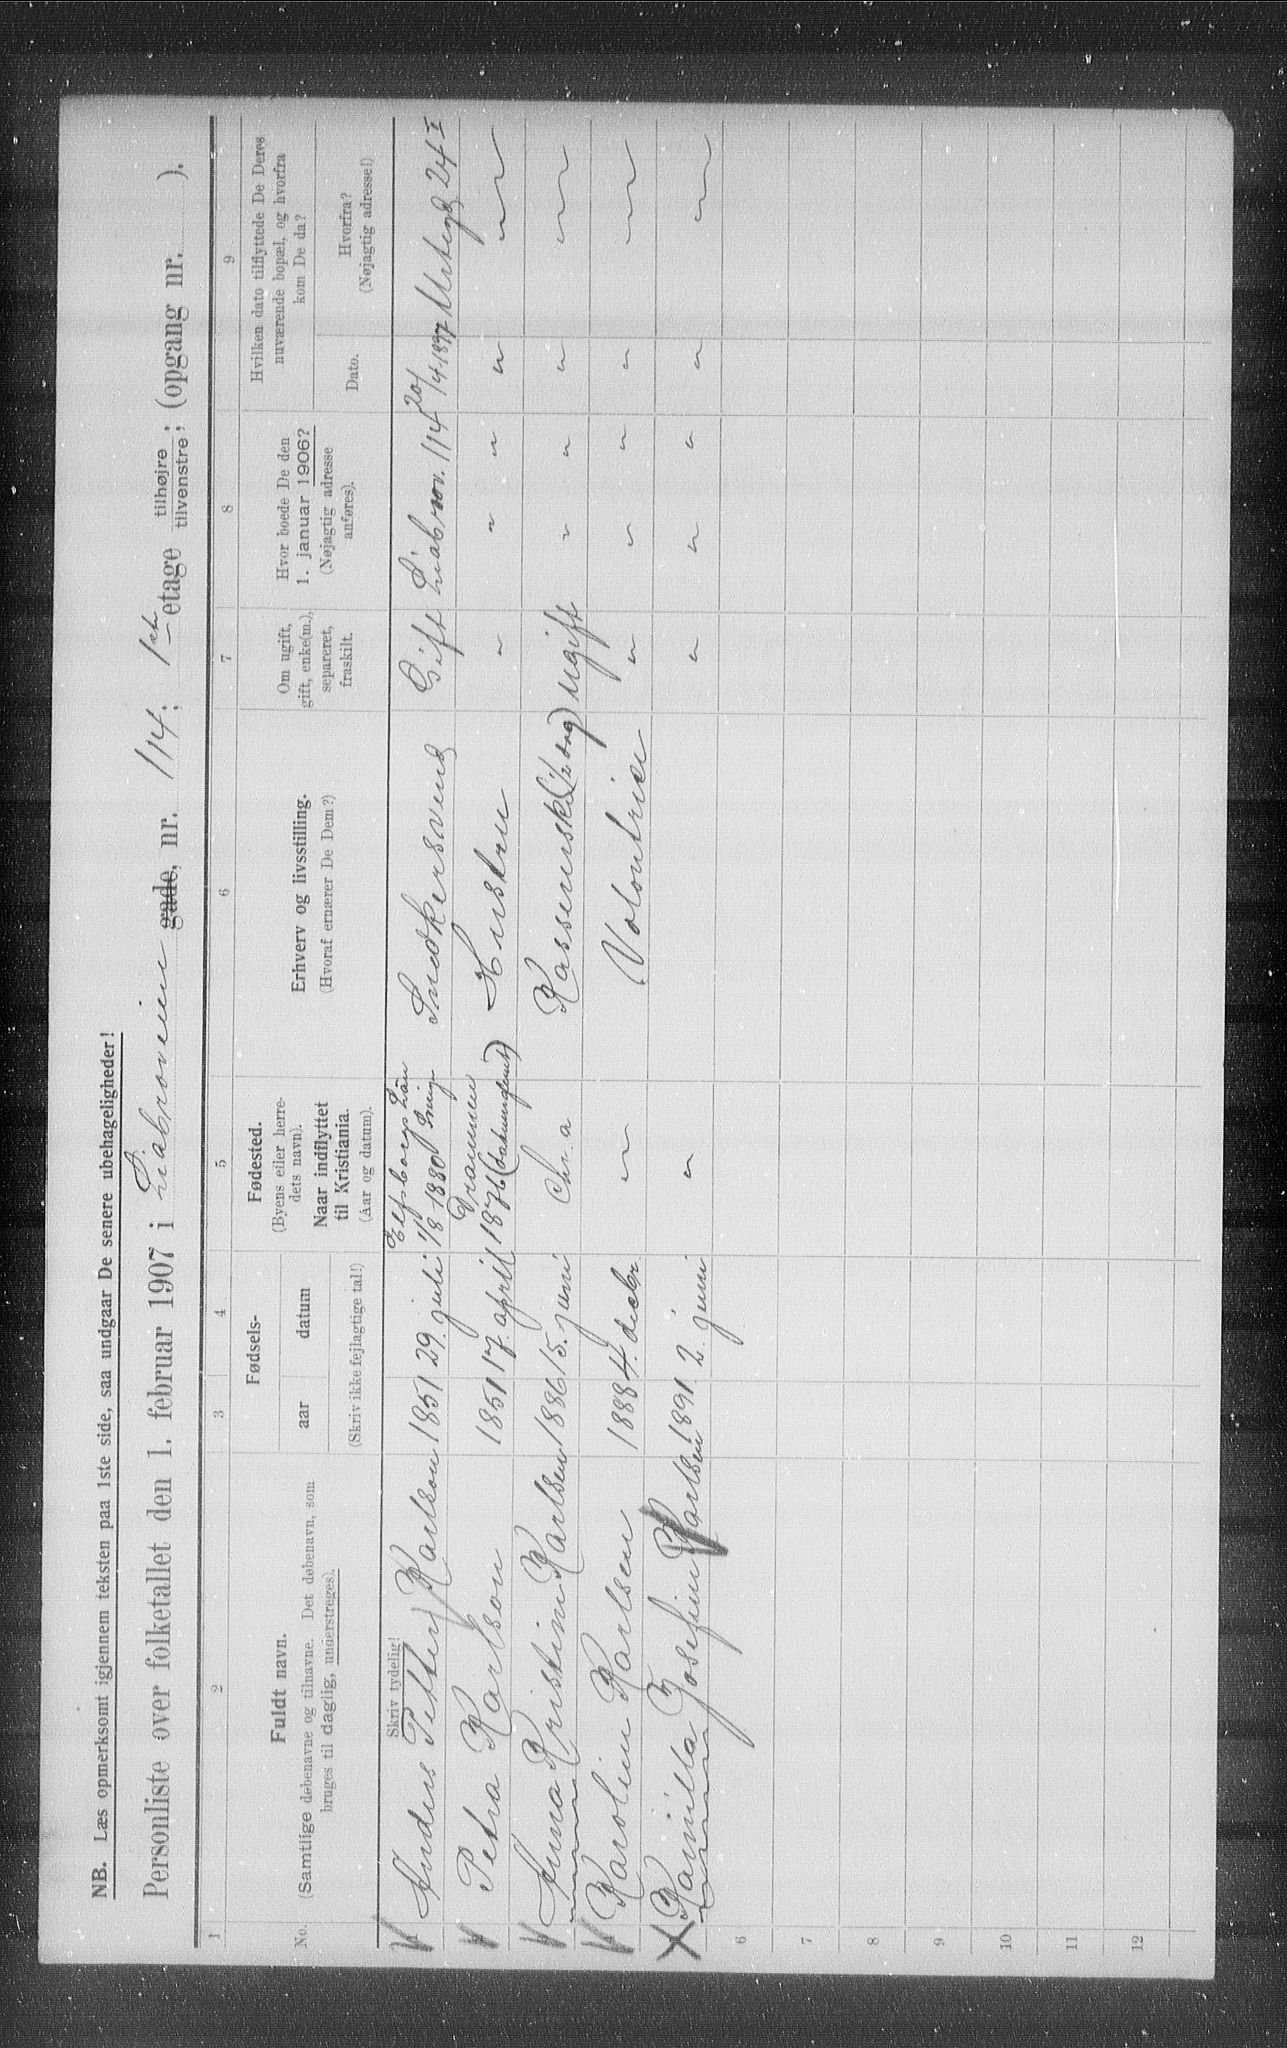 NB. Læs opmerksomt igjennem teksten paa 1ste side, saa undgaar De senere ubehageligheder!
Personliste over folketallet den 1. februar 1907 i Liabroveien gade, nr. 114; 1ste etage tilhøjre tilvenstre; (opgang nr. ).
1 2 3 4 5 6 7 8 9
No.
Fuldt navn.
(Samtlige døbenavne og tilnavne. Det døbenavn, som
bruges til daglig, understreges).
Skriv tydelig!
Fødsels-
aar datum
(Skriv ikke fejlagtige tal!)
Fødested.
(Byens eller herre-
dets navn).
Naar indflyttet
til Kristiania.
(Aar og datum).
Erhverv og livsstilling.
(Hvoraf ernærer De Dem?)
Om ugift,
gift, enke(m.),
separeret,
fraskilt.
Hvor boede De den
1. januar 1906?
(Nøjagtig adresse
anføres).
Hvilken dato tilflyttede De Deres
nuværende bopæl, og hvorfra
kom De da?
Dato.
Hvorfra?
(Nøjagtig adresse!)
Anders Petter Karlson 1851 29. juli Elfsborgs Län 1/8 1880 Snedkersvend Gift Liabrov. 114 20/4 1897 Urtegd 24 I
Petra Karlson 1851 17. april Drammen 1876 Hustru " " " " "
Anna Kristine Karlsen 1886 15. juni Chr.a Kasserske ugift " " " "
Karoline Karlsen 1888 4. decbr " Volontrice " " " " "
Kamilla Josefine Karlsen 1891 2. juni " " " " " "
6
7
8
9
10
11
12